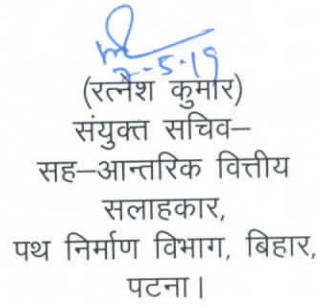 7-5-19
(रत्नेश कुमार)
संयुक्त सचिव–
सह–आन्तरिक वित्तीय
सलाहकार,
पथ निर्माण विभाग, बिहार,
पटना।